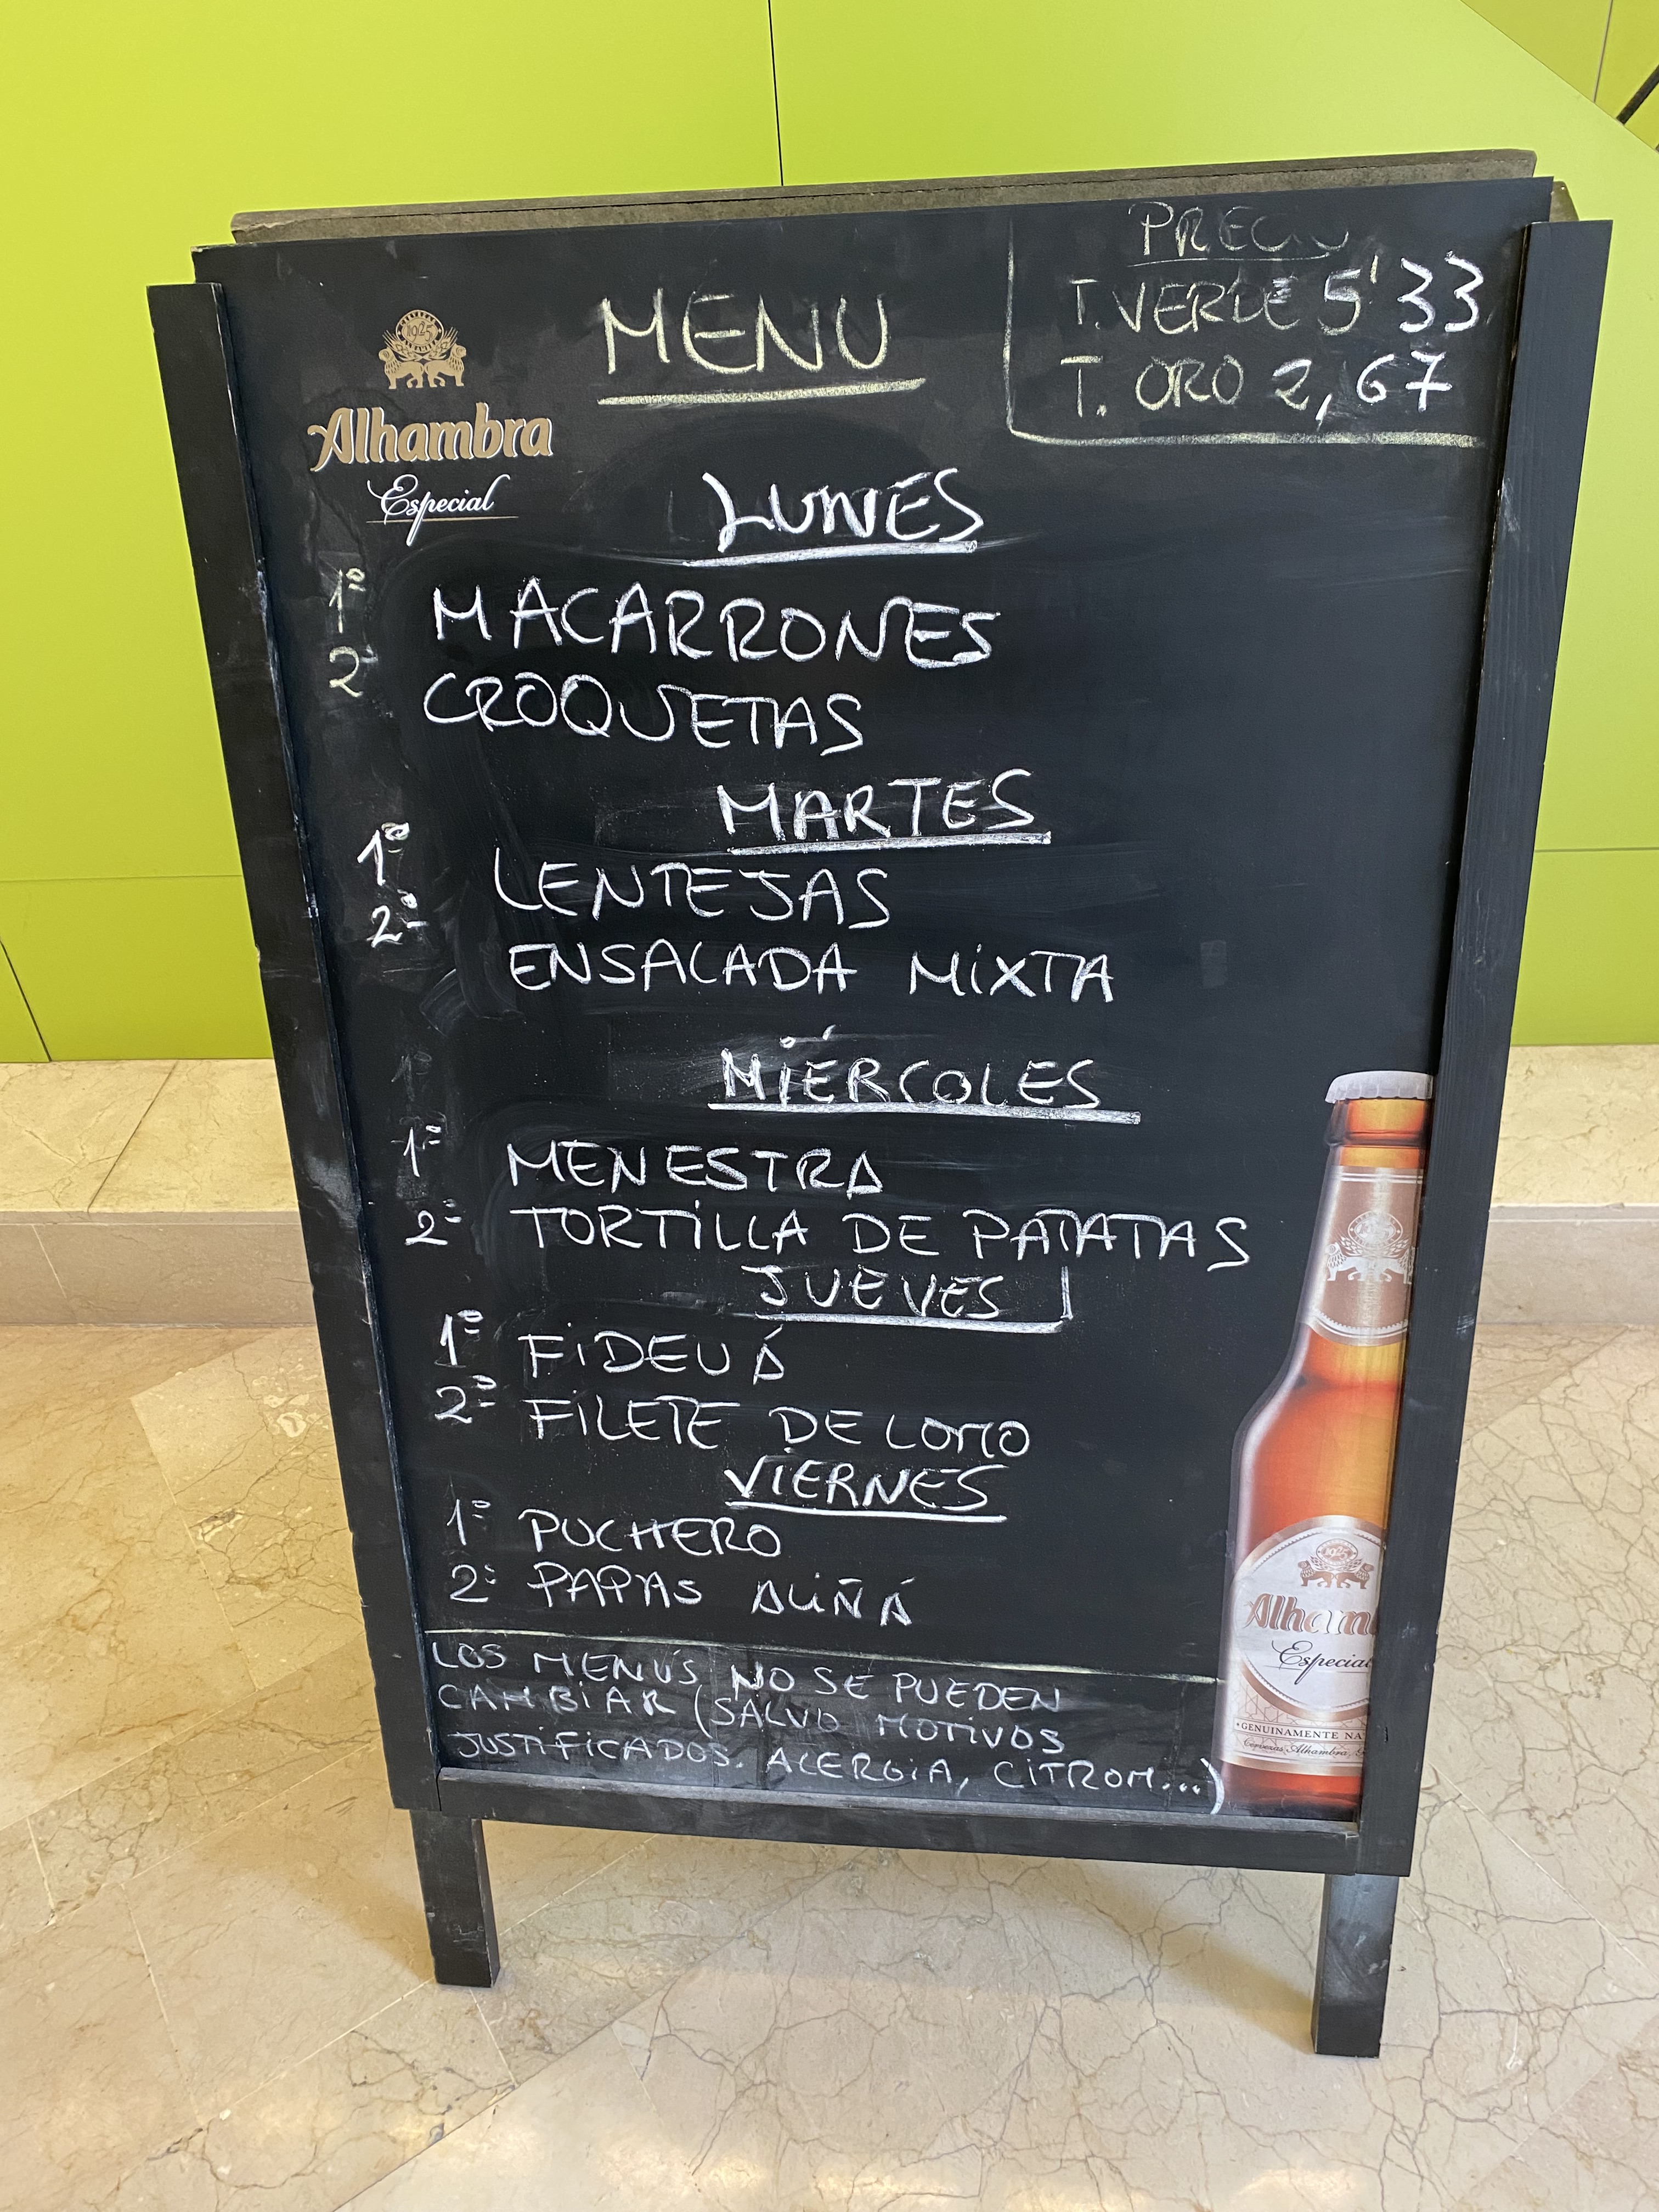 PRECIO
T. VERDE 5'33
T. ORO 2,67
MENU
1925
Alhambra
Especial
LUNES
1º MACARRONES
2º CROQUETAS
MARTES
1º LENTEJAS
2º ENSALADA MIXTA
MIÉRCOLES
1º MENESTRA
2º TORTILLA DE PATATAS
JUEVES
1º FIDEUÁ
2º FILETE DE LOMO
VIERNES
1º PUCHERO
2º PAPAS ALIÑÁ
LOS MENÚS NO SE PUEDEN
CAMBIAR (SALVO MOTIVOS
JUSTIFICADOS. ALERGIA, CITROM...)
1925
Alham
Especial
GENUINAMENTE NA
Cervezas Alhambra,